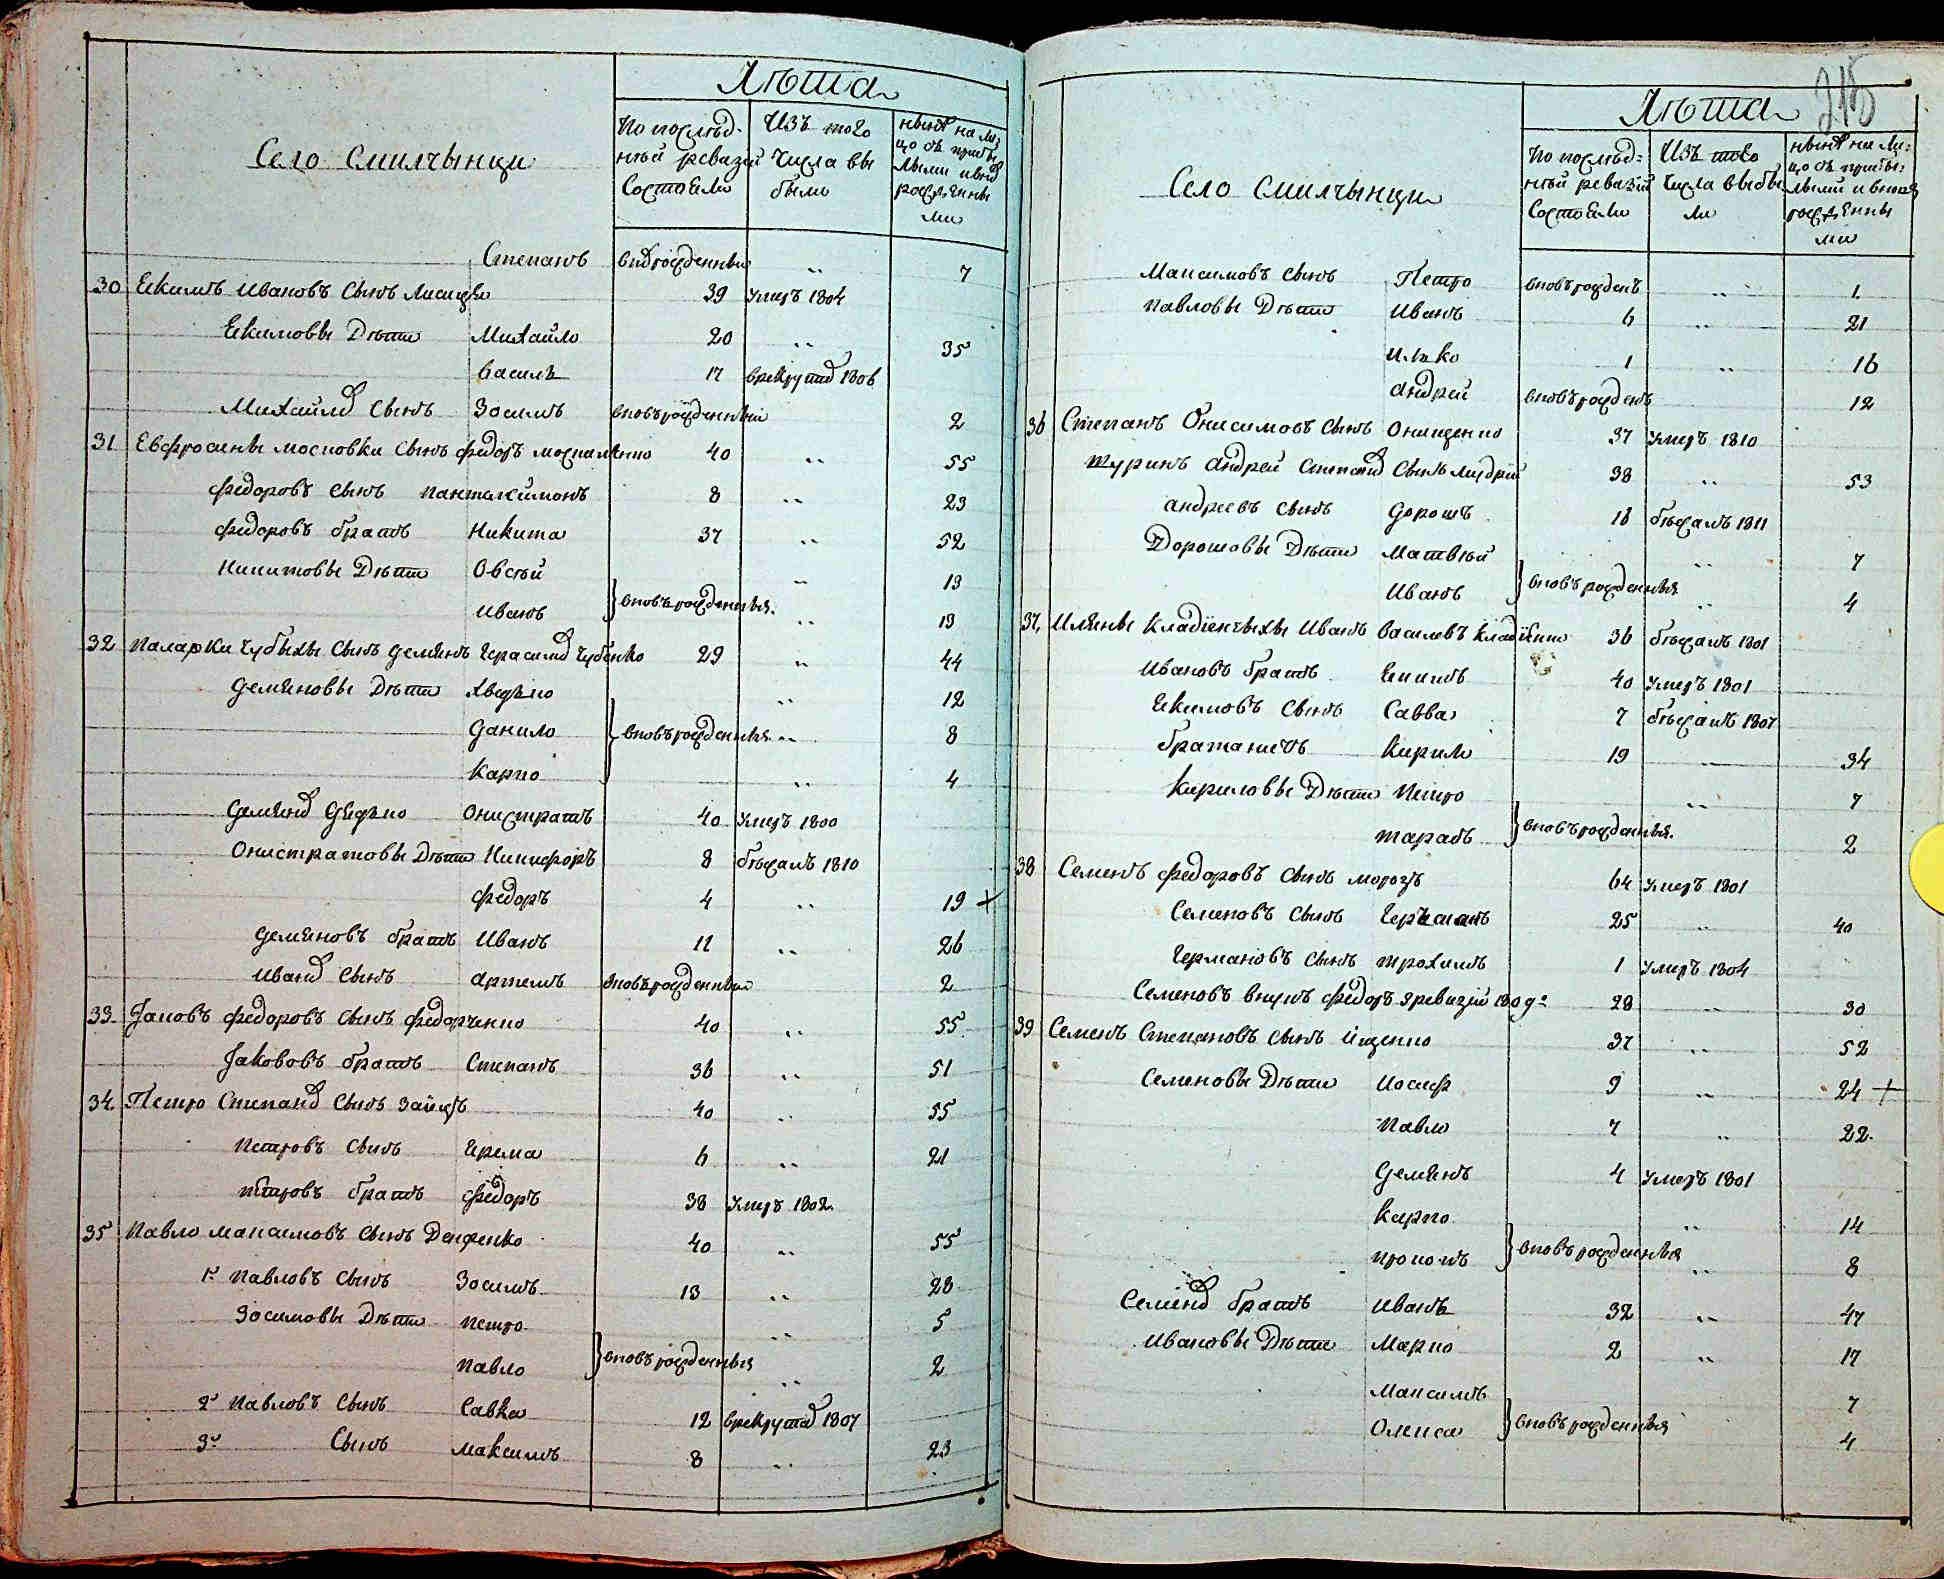 Лѣта
Село Смилчынци
По послѣд-
ней ревизіи
состояли
Изъ того
числа вы
были
нынѣ на ли-
цо съ прибы
лыми и внов
рожденны
ми
Степанъ вновъ рожденный „ 7
30 Екимъ Ивановъ сынъ Лисицко 39 Умеръ 1804
Екимовы Дѣти Михайло 20 „ 35
Василь 17 в рекруты 1806
Михайлов сынъ Зосимъ вновърожденный 2
31 Евфросины Московки сынъ Федоръ Москаленко 40 „ 55
Федоровъ сынъ Панталимонъ 8 „ 23
Федоровъ братъ Никита 37 „ 52
Никитовы Дѣти Овсѣй „ 13
Иванъ } вновърожденныя. „ 13
32 Паларки Чубыхы сынъ Демянъ Герасимов Чубенко 29 „ 44
Демяновы Дѣти Хведко „ 12
Данило } вновърожденныя „ 8
Карпо „ 4
Демянов Дядко Онистратъ 40 Умеръ 1800
Онистратовы Дѣти Никифоръ 8 бѣжалъ 1810
Федоръ 4 „ 19 +
Демяновъ братъ Иванъ 11 „ 26
Иванов сынъ Артемъ вновърожденный 2
33 Іаковъ Федоровъ сынъ Федорченко 40 „ 55
Іаковъ братъ Степанъ 36 „ 51
34 Петро Степанов сынъ Заяцъ 40 „ 55
Петровъ сынъ Ерема 6 „ 21
Петровъ братъ Федоръ 38 Умеръ 1802
35 Павло Максимовъ сынъ 40 „ 55
1й Павловъ сынъ Зосимъ 13 „ 28
Зосимовы Дѣти Петро „ 5
Павло } вновърожденныя „ 2
2й Павловъ сынъ Савка 12 в рекруты 1807
3й сынъ Максимъ 8 „ 23
215
Лѣта
Село Смилчынци
По послѣд-
ней ревизіи
состояли
Изъ того
числа выбы
ли
нынѣ на ли-
цо съ прибы-
лыми и вновъ
рожденны
ми
Максимовъ сынъ Петро вновърожденъ „ 1
Павловы Дѣти Иванъ 6 „ 21
Илько 1 „ 16
Андрей вновърожденъ 12
36 Степанъ Онисимовъ сынъ Онищенко 37 Умеръ 1810
Шуринъ Андрей Степанов сынъ 38 „ 53
Андреевъ сынъ Дорошъ 18 бѣжалъ 1811
Дорошовы Дѣти Матвѣй „ 7
Иванъ } вновърожденныя „ 4
37 Иляны Кладіенчыхы Иванъ Василевъ Кладіенко 36 бѣжалъ 1801
Ивановъ братъ Екимъ 40 Умеръ 1801
Екимовъ сынъ Савва 7 бѣжалъ 1807
братаничъ Кирило 19 „ 34
Кириловы Дѣти Петро „ 7
Тарасъ } вновърожденныя. 2
38 Семенъ Федоровъ сынъ Морозъ 64 Умеръ 1801
Семеновъ сынъ Германъ 25 „ 40
Германовъ сынъ Трохимъ 1 Умеръ 1804
Семеновъ внукъ Федоръ з ревизіи 180 д: 28 „ 30
39 Семенъ Степановъ сынъ Ищенко 37 „ 52
Семеновы Дѣти Иосиф 9 „ 24 +
Павло 7 „ 22
Демянъ 4 Умеръ 1801
Карпо „ 14
Прокопъ } вновърожденныя „ 8
Семенов братъ Иванъ 32 „ 47
Ивановы Дѣти Марко 2 „ 17
Максимъ 7
Олекса } вновърожденныя 4